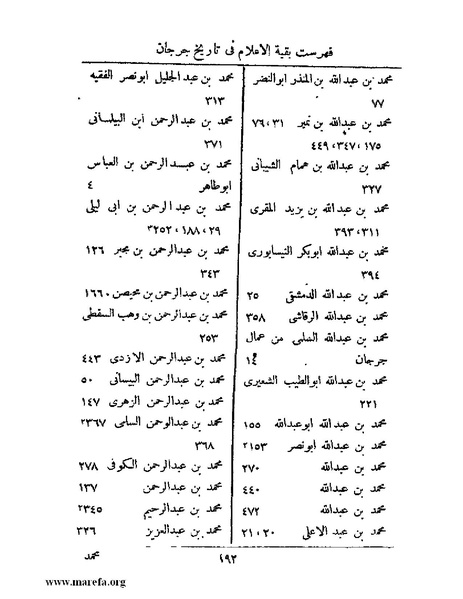 فهرست بقية الاعلام فى تاريخ جرجان
محمد بن عبدالله بن المنذر ابوالنضر
٧٧
محمد بن عبدالله بن نمير ٣١ ، ٧٦ ،
١٧٥ ، ٣٤٧ ، ٤٤٩
محمد بن عبدالله بن همام الشيبانى
٣٢٧
محمد بن عبدالله بن يزيد المقرى
٣١١ ، ٣٩٣
محمد بن عبدالله ابوبكر النيسابورى
٣٩٤
محمد بن عبدالله الدمشقى ٢٥
محمد بن عبدالله الرقاشى ٣٥٨
محمد بن عبدالله السلمى من عمال
جرجان ١٤
محمد بن عبدالله ابوالطيب الشعيرى
٢٢١
محمد بن عبدالله ابوعبدالله ١٥٥
محمد بن عبدالله ابونصر
محمد بن عبدالله ٢٧٠
محمد بن عبدالله ٤٤٠
محمد بن عبدالله ٤٧٢
محمد بن عبد الاعلى ٢٠ ، ٢١
محمد بن عبد الجليل ابونصر الفقيه
٣١٣
محمد بن عبدالرحمن ابن البيلسانى
٣٧١
محمد بن عبدالرحمن بن العباس
ابوطاهر ٤
محمد بن عبد الرحمن بن ابى ليلى
٢٩ ، ١٨٨ ،
محمد بن عبدالرحمن بن مجبر ١٢٦
٣٤٣
محمد بن عبدالرحمن بن محيصن
محمد بن عبدالرحمن بن وهب السقطى
٢٥٣
محمد بن عبدالرحمن الازدى ٤٤٣
محمد بن عبدالرحمن البيسانى ٥٠
محمد بن عبدالرحمن الزهرى ١٤٧
محمد بن عبدالرحمن السلمى
٣٦٨
محمد بن عبدالرحمن الكوفى ٢٧٨
محمد بن عبدالرحمن ١٣٧
محمد بن عبدالرحيم
محمد بن عبدالعزيز ٣٢٦
١٩٢
محمد
www.marefa.org